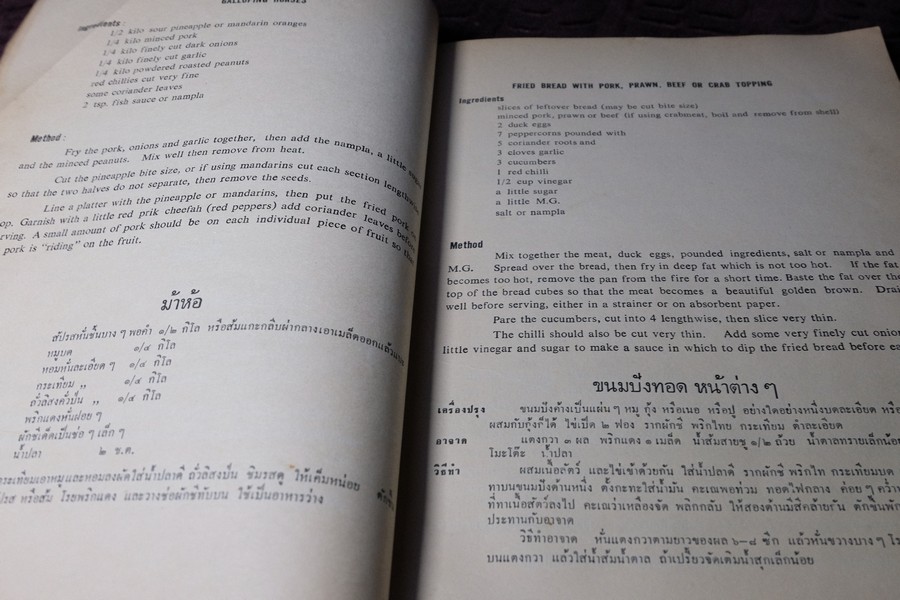 GALLOPING HORSES
Ingredients :
1/2 kilo sour pineapple or mandarin oranges
1/4 kilo minced pork
1/4 kilo finely cut dark onions
1/4 kilo finely cut garlic
1/4 kilo powdered roasted peanuts
red chillies cut very fine
some coriander leaves
2 tsp. fish sauce or nampla
Method :
Fry the pork, onions and garlic together, then add the nampla, a little
and the minced peanuts. Mix well then remove from heat.
Cut the pineapple bite size, or if using mandarins cut each section lengthwise
so that the two halves do not separate, then remove the seeds.
Line a platter with the pineapple or mandarins, then put the fried pork on
op. Garnish with a little red prik cheefah (red peppers) add coriander leaves before
erving. A small amount of pork should be on each individual piece of fruit so the
pork is "riding" on the fruit.
ม้าห้อ
สัปรสหั่นชิ้นบาง ๆ พอคำ ๑/๒ กิโล หรือส้มแกะกลีบผ่ากลางเอาเมล็ดออกแล้วแบะ
หมูบด ๑/๔ กิโล
หอมหั่นละเอียด ๆ ๑/๔ กิโล
กระเทียม ,, ๑/๔ กิโล
ถั่วลิสงคั่วป่น ,, ๑/๔ กิโล
พริกแดงหั่นฝอย ๆ
ผักชีเด็ดเป็นช่อ ๆ เล็ก ๆ
น้ำปลา ๒ ช.ค.
กระเทียมเอาหมูและหอมลงผัดใส่น้ำปลาดี ถั่วลิสงป่น ชิมรสดู ให้เค็มหน่อย ตักขึ้น
ปรส หรือส้ม โรยพริกแดง และวางช่อผักชีทับบน ใช้เป็นอาหารว่าง
FRIED BREAD WITH PORK, PRAWN, BEEF OR CRAB TOPPING
Ingredients
slices of leftover bread (may be cut bite size)
minced pork, prawn or beef (if using crabmeat, boil and remove from shell)
2 duck eggs
7 peppercorns pounded with
5 coriander roots and
3 cloves garlic
3 cucumbers
1 red chilli
1/2 cup vinegar
a little sugar
a little M.G.
salt or nampla
Method
Mix together the meat, duck eggs, pounded ingredients, salt or nampla and
M.G. Spread over the bread, then fry in deep fat which is not too hot. If the fat
becomes too hot, remove the pan from the fire for a short time. Baste the fat over the
top of the bread cubes so that the meat becomes a beautiful golden brown. Drai
well before serving, either in a strainer or on absorbent paper.
Pare the cucumbers, cut into 4 lengthwise, then slice very thin.
The chilli should also be cut very thin. Add some very finely cut onion
little vinegar and sugar to make a sauce in which to dip the fried bread before ea
ขนมปังทอด หน้าต่าง ๆ
เครื่องปรุง ขนมปังค้างเป็นแผ่น ๆ หมู กุ้ง หรือเนื้อ หรือปู อย่างใดอย่างหนึ่งบดละเอียด หรือ
ผสมกับกุ้งก็ได้ ไข่เป็ด ๒ ฟอง รากผักชี พริกไทย กระเทียม ตำละเอียด
อาจาด แตงกวา ๓ ผล พริกแดง ๑ เมล็ด น้ำส้มสายชู ๑/๒ ถ้วย น้ำตาลทรายเล็กน้อย
โมะโต๊ะ น้ำปลา
วิธีทำ ผสมเนื้อสัตว์ และไข่เข้าด้วยกัน ใส่น้ำปลาดี รากผักชี พริกไท กระเทียมบด
ทาบนขนมปังด้านหนึ่ง ตั้งกะทะใส่น้ำมัน คะเณพอท่วม ทอดไฟกลาง ค่อย ๆ คว่ำ
ที่ทาเนื้อสัตว์ลงไป คะเณว่าเหลืองจัด พลิกกลับ ให้สองด้านมีสีคล้ายกัน ตักขึ้นพัก
ประทานกับอาจาด
วิธีทำอาจาด หั่นแตงกวาตามยาวของผล ๖-๘ ซีก แล้วหั่นขวางบาง ๆ โร
บนแตงกวา แล้วใส่น้ำส้มน้ำตาล ถ้าเปรี้ยวจัดเติมน้ำสุกเล็กน้อย